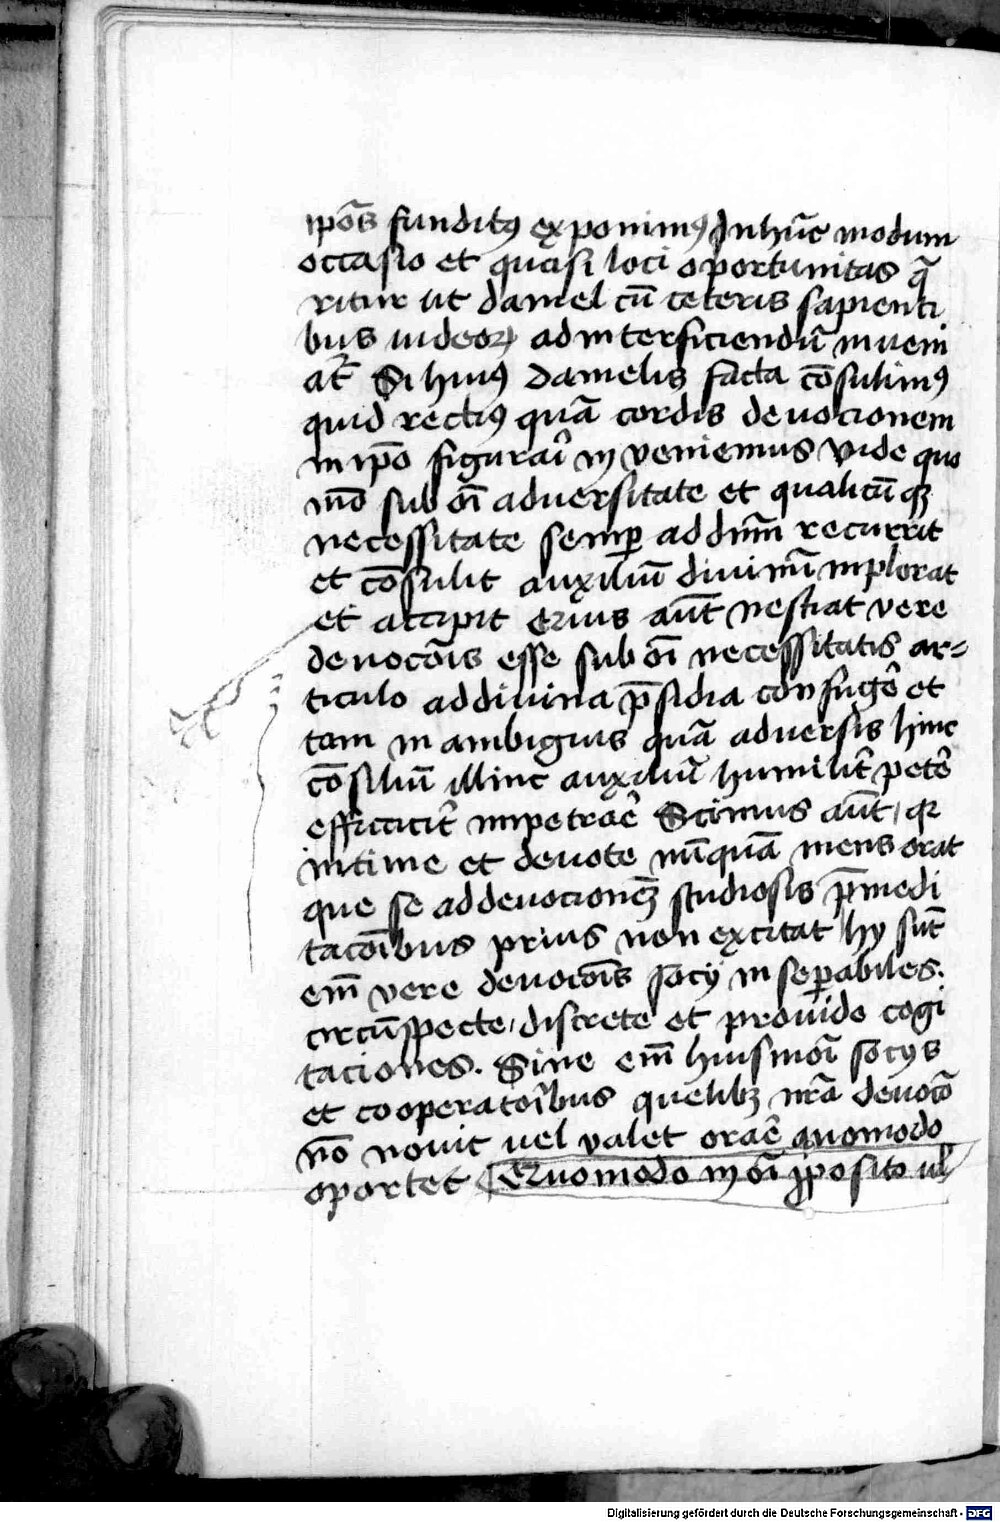 ip̄os funditꝯ exponimꝯ In hūc modum
occasio et quasi loci oportunitas q̄
ritur ut daniel cū ceteris sapienti
bus iudeoꝝ ad interficiendū inveni
at᷑ Si huiꝯ danielis facta cōsulimꝯ
quid rectiꝯ quā cordis deuocionem
in ip̄o figurari inveniemus Vide quo
mō sub oī adversitate et qualicūqꝫ
necessitate semꝑ ad dn̄m recurrit
et cōsulit auxiliū divinū inplorat
et accipit Quis aūt nesciat vere
deuocōis esse sub oī necessitatis ar⸗
ticulo ad divina p̄sidia confuge᷑ et
tam in ambiguis quā adversis hinc
cōsiliū illinc auxiliū humilit᷑ pete᷑
efficacit᷑ impetrar̄e Scimus aūt, qꝛ
intime et deuote nūquā mens orat
que se ad deuocionēꝫ studiosis p̄medi
tacōibus prius non excitat hy sūt
em̄ vere deuocōis socij inseꝑabiles.
circūspecte, discrete et provide cogi
taciones. Sine em̄ huiusmōi socijs
et cooperatōibus quelibꝫ nr̄a deuocō
nō novit vel valet orar̄e quomodo
oportet Quomodo in oī ꝓposito ul̄